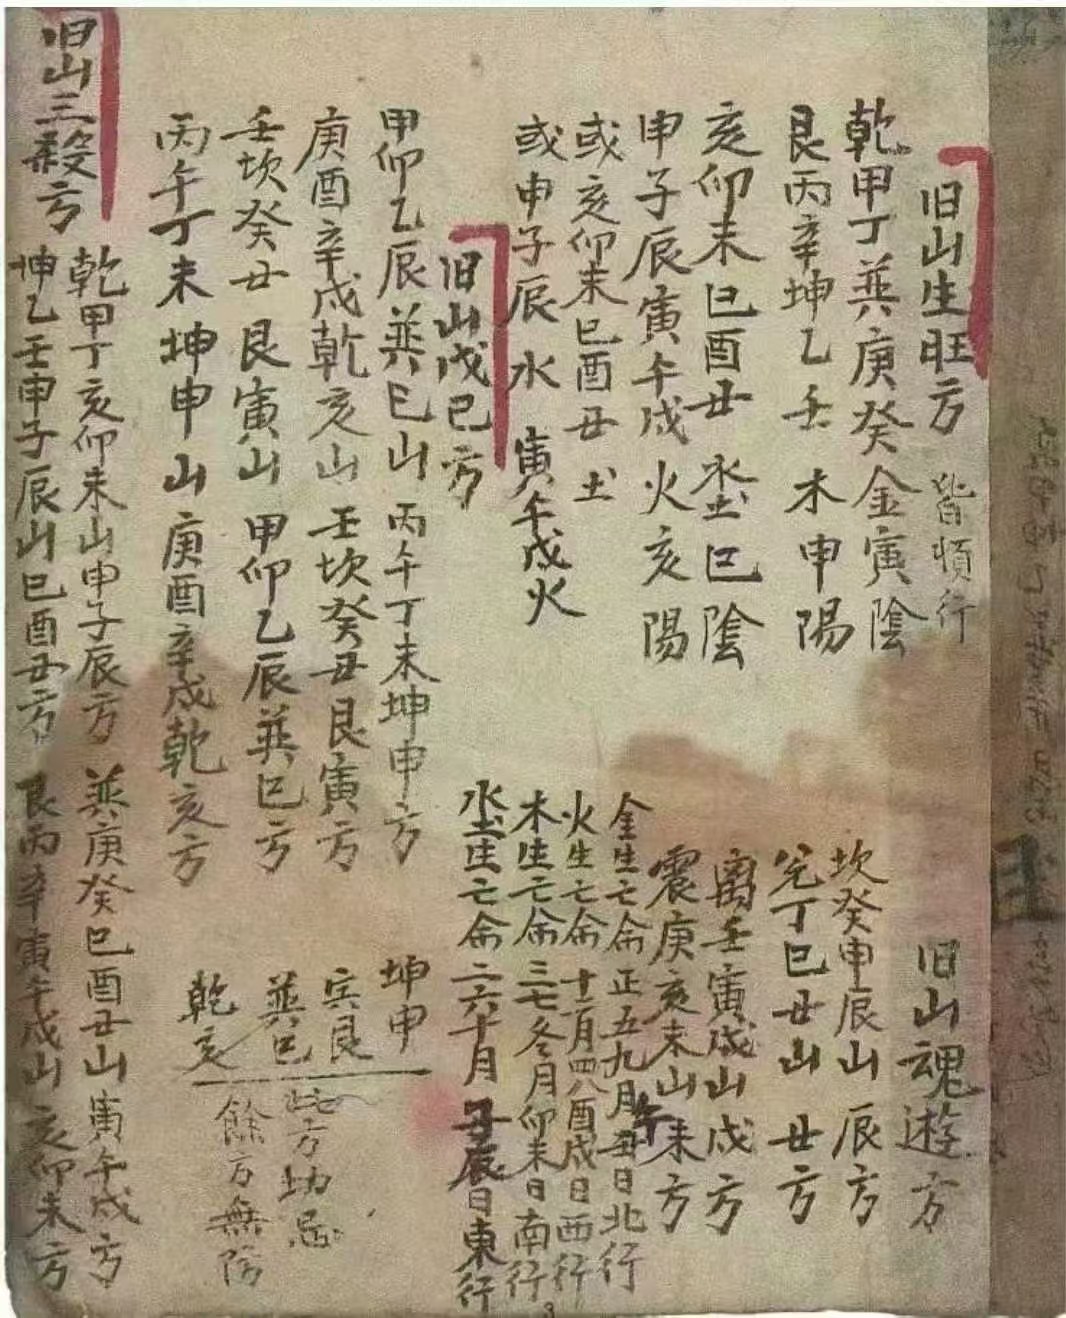 旧山生旺方 皆順行
乾甲丁巽庚癸金寅陰
艮丙辛坤乙壬木申陽
亥卯未巳酉丑水土巳陰
申子辰寅午戌火亥陽
或亥卯未巳酉丑土
或申子辰水寅午戌火
旧山魂遊方
坎癸申辰山辰方
兌丁巳丑山丑方
離壬寅戌山戌方
震庚亥未山未方
金生亡命正五九月午丑日北行
火生亡命十二月四八酉戌日西行
木生亡命三七冬月卯未日南行
水土生亡命二六十月子辰日東行
旧山戊己方
甲卯乙辰巽巳山丙午丁未坤申方
庚酉辛戌乾亥山壬坎癸丑艮寅方
壬坎癸丑艮寅山甲卯乙辰巽巳方
丙午丁未坤申山庚酉辛戌乾亥方
坤申
寅艮
巽巳
乾亥
此方切忌
餘方無防
旧山三殺方
乾甲丁亥卯未山申子辰方 巽庚癸巳酉丑山寅午戌方
坤乙壬申子辰山巳酉丑方 艮丙辛寅午戌山亥卯未方